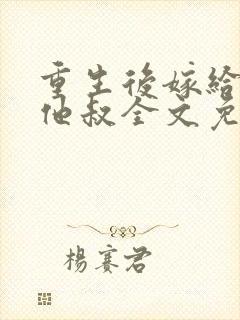 重生後嫁給
他叔全文免
楊賽君